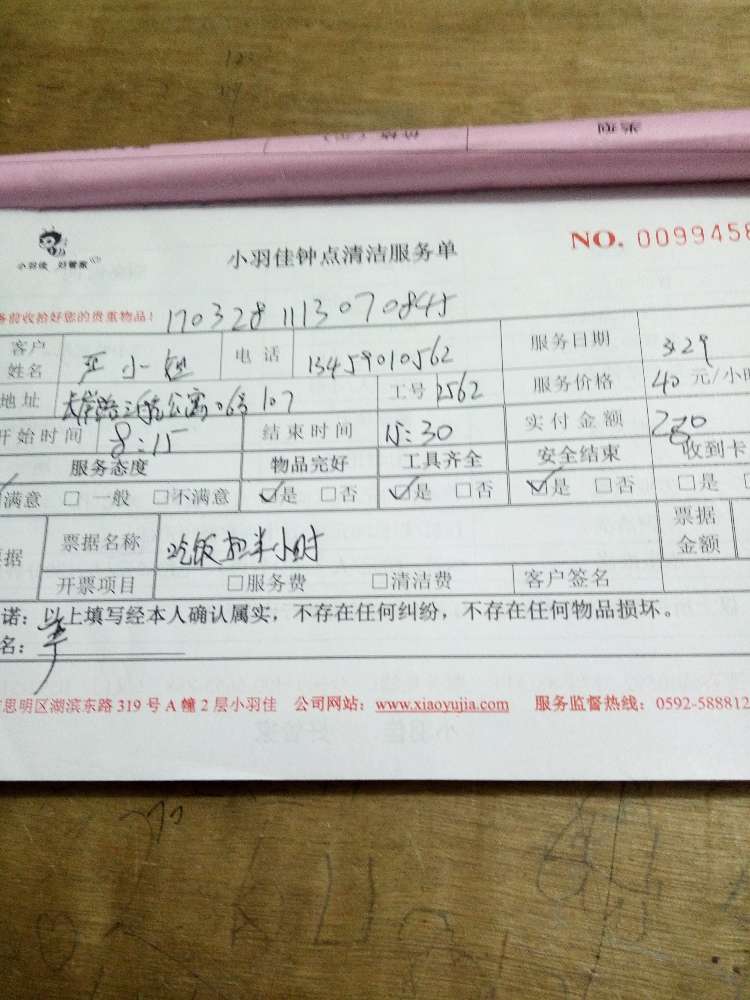 小羽佳 好管家
小羽佳钟点清洁服务单
NO. 0099458
务前收拾好您的贵重物品！ 1703281113070845
客户姓名 严小姐 电话 13459010562 服务日期 3.29
地址 公寓06号107 工号 2562 服务价格 40 元/小时
开始时间 8:15 结束时间 15:30 实付金额 280
服务态度 物品完好 工具齐全 安全结束 收到卡
满意 □一般 □不满意 ☑是 □否 ☑是 □否 ☑是 □否 □是 □
票据名称 吃饭扣半小时 票据金额
开票项目 □服务费 □清洁费 客户签名
诺：以上填写经本人确认属实，不存在任何纠纷，不存在任何物品损坏。
名：
思明区湖滨东路 319 号 A 幢 2 层小羽佳 公司网站：www.xiaoyujia.com 服务监督热线：0592-588812